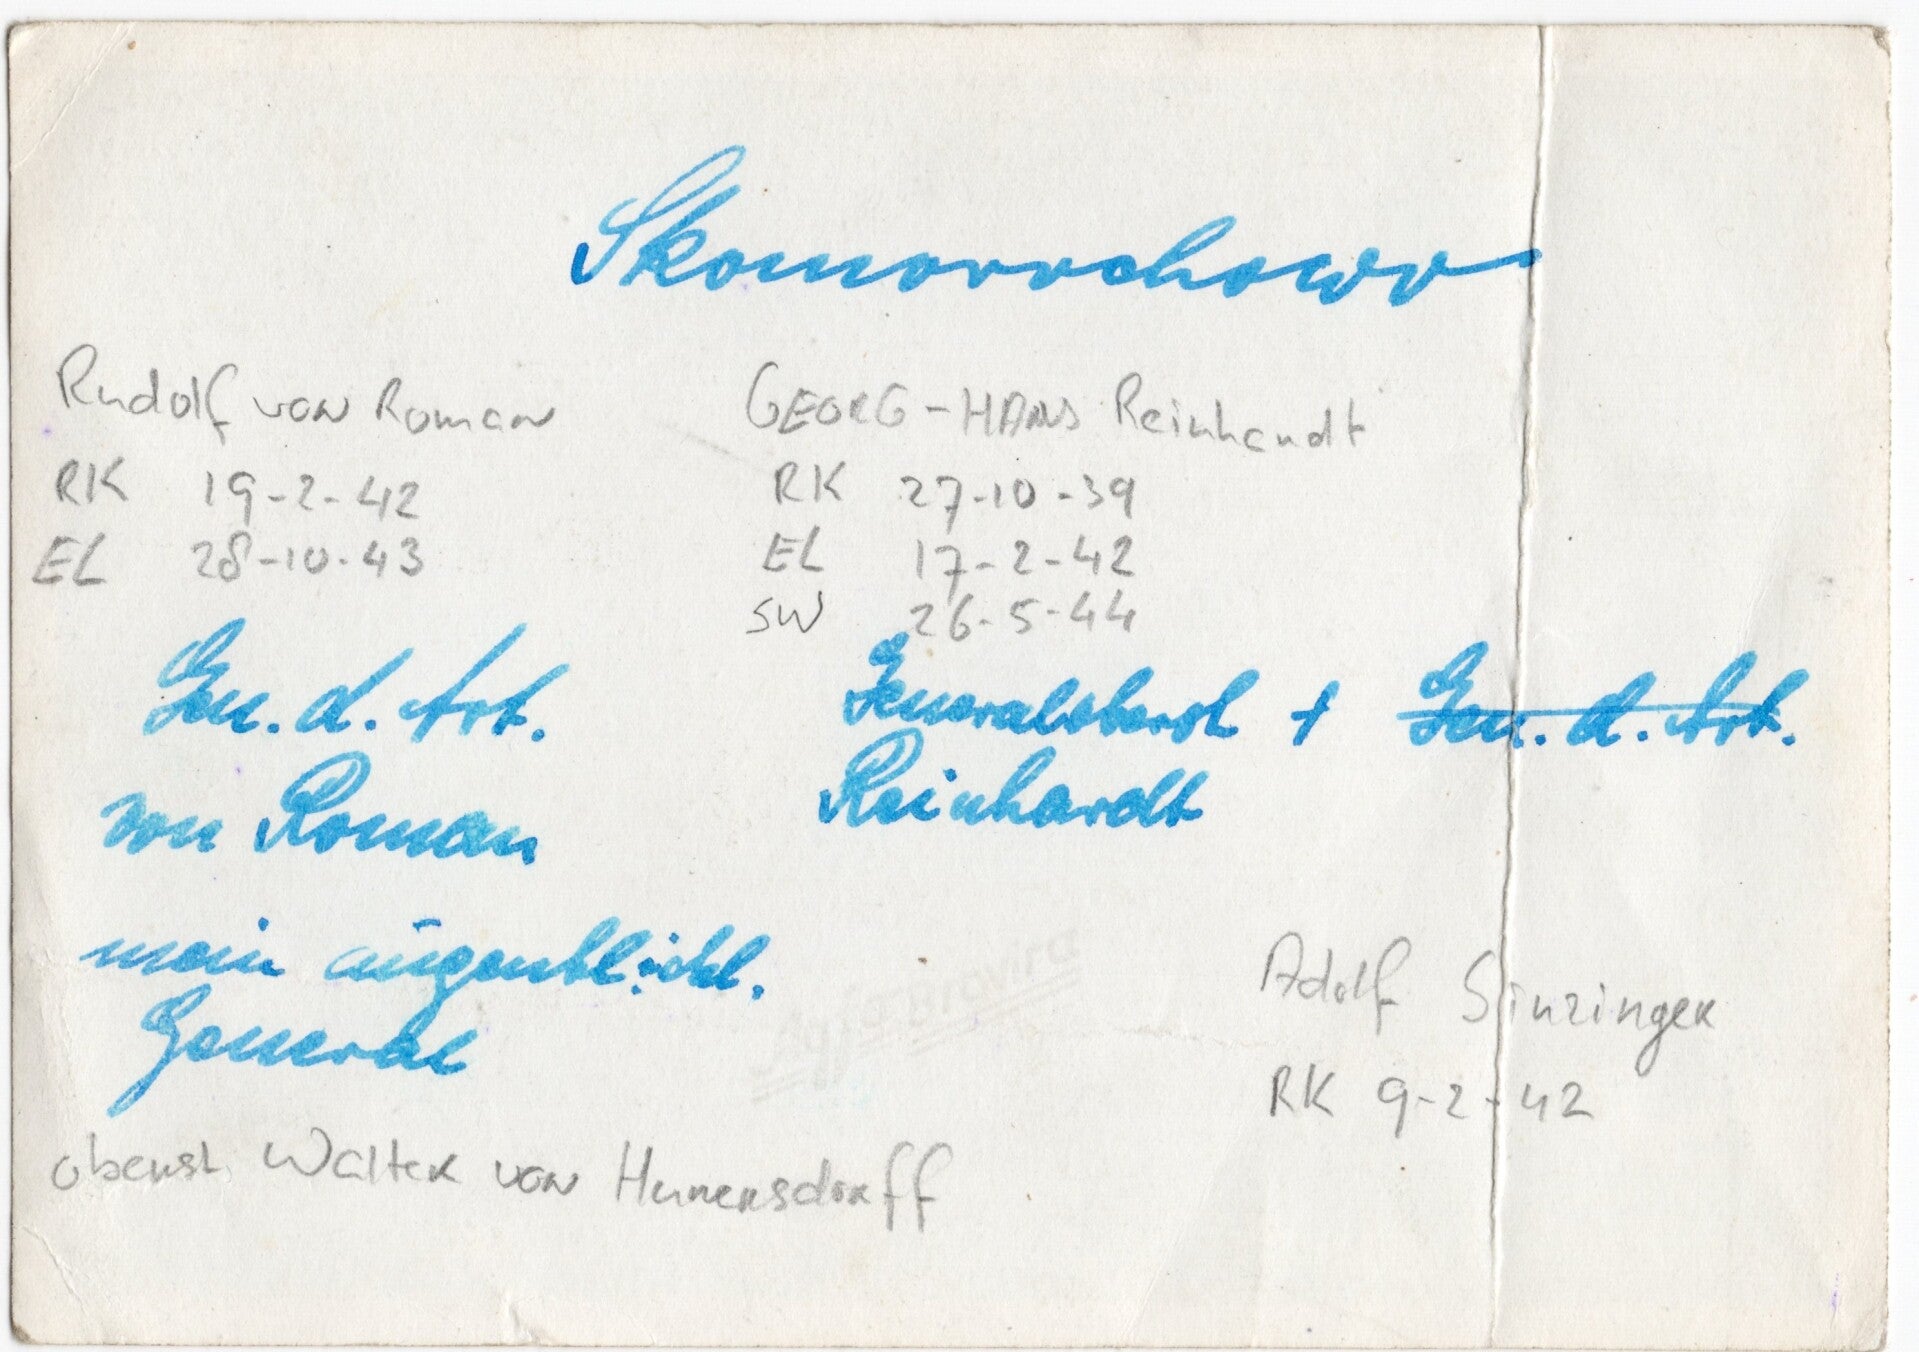 Skomorochowo
Rudolf von Roman
RK 19-2-42
EL 28-10-43
GEORG-HANS Reinhardt
RK 27-10-39
EL 17-2-42
SW 26-5-44
Gen. d. Art.
von Roman
mein augenblickl.
General
Generaloberst + Gen. d. Art.
Reinhardt
Agfa Brovira
Adolf Sinzinger
RK 9-2-42
oberst Walter von Hunersdorff